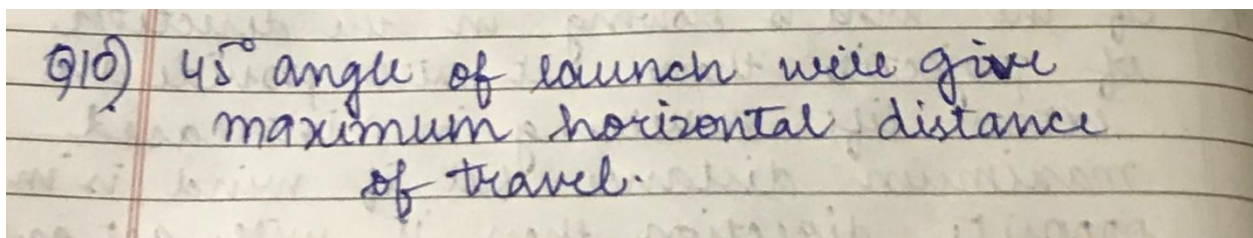 Q10) 45° angle of launch will give
maximum horizontal distance
of travel.